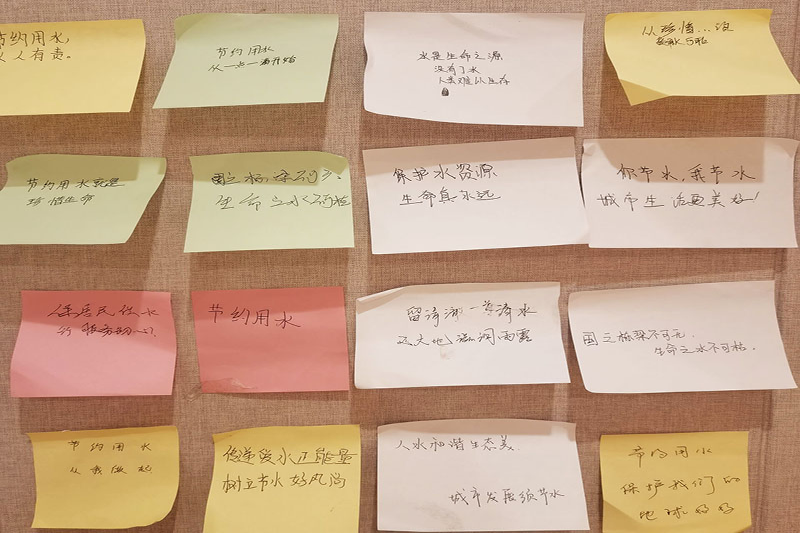 节约用水,
人人有责。
节约用水
从一点一滴开始
水是生命之源
没有了水
人类难以生存
从珍惜
节约用水就是
珍惜生命
国之栋梁不可
生命之水不可枯
保护水资源
生命真永远
你节水,我节水
城市生活更美好!
保居民饮水
节约用水
留清澈一
还大地滋润雨露
国之栋梁不可无,
生命之水不可枯.
节约用水
从我做起
传递爱水正能量
树立节水好风尚
人水和谐生态美
城市发展须节水
节约用水
保护我们的
地球妈妈